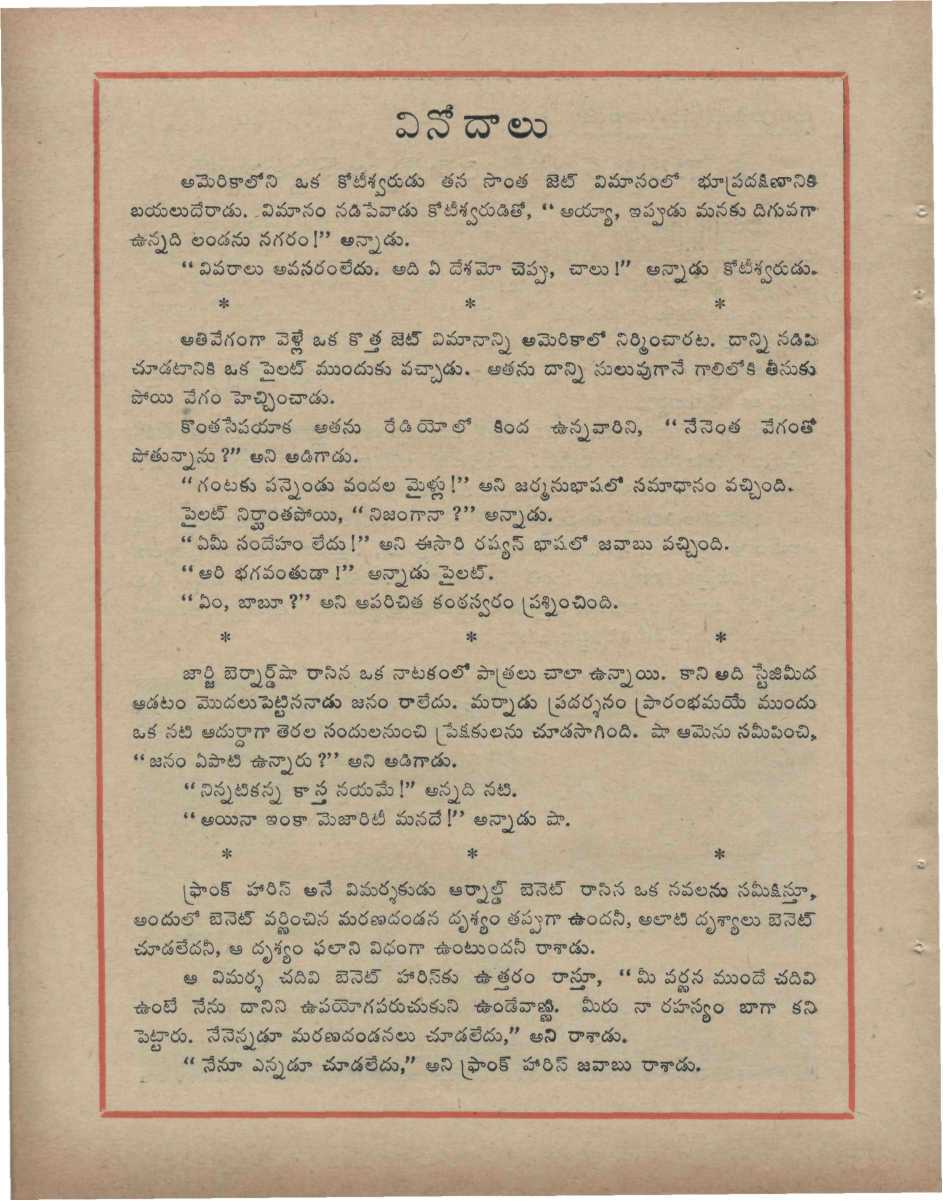 వినోదాలు
అమెరికాలోని ఒక కోటీశ్వరుడు తన సొంత జెట్ విమానంలో భూప్రదక్షిణానికి
బయలుదేరాడు. విమానం నడిపేవాడు కోటీశ్వరుడితో, “అయ్యా, ఇప్పుడు మనకు దిగువగా
ఉన్నది లండను నగరం!” అన్నాడు.
“వివరాలు అవసరంలేదు. అది ఏ దేశమో చెప్పు, చాలు!” అన్నాడు కోటీశ్వరుడు.
* * *
అతివేగంగా వెళ్లే ఒక కొత్త జెట్ విమానాన్ని అమెరికాలో నిర్మించారట. దాన్ని నడిపి
చూడటానికి ఒక పైలట్ ముందుకు వచ్చాడు. అతను దాన్ని సులువుగానే గాలిలోకి తీసుకు
పోయి వేగం హెచ్చించాడు.
కొంతసేపయాక అతను రేడియోలో కింద ఉన్నవారిని, “నేనెంత వేగంతో
పోతున్నాను?” అని అడిగాడు.
“గంటకు పన్నెండు వందల మైళ్లు!” అని జర్మనుభాషలో సమాధానం వచ్చింది.
పైలట్ నిర్ఘాంతపోయి, “నిజంగానా?” అన్నాడు.
“ఏమీ సందేహం లేదు!” అని ఈసారి రష్యన్ భాషలో జవాబు వచ్చింది.
“ఆరి భగవంతుడా!” అన్నాడు పైలట్.
“ఏం, బాబూ?” అని అపరిచిత కంఠస్వరం ప్రశ్నించింది.
* * *
జార్జి బెర్నార్డ్‌షా రాసిన ఒక నాటకంలో పాత్రలు చాలా ఉన్నాయి. కాని అది స్టేజిమీద
ఆడటం మొదలుపెట్టిననాడు జనం రాలేదు. మర్నాడు ప్రదర్శనం ప్రారంభమయే ముందు
ఒక నటి ఆదుర్దాగా తెరల సందులనుంచి ప్రేక్షకులను చూడసాగింది. షా ఆమెను సమీపించి,
“జనం ఏపాటి ఉన్నారు?” అని అడిగాడు.
“నిన్నటికన్న కాస్త నయమే!” అన్నది నటి.
“అయినా ఇంకా మెజారిటీ మనదే!” అన్నాడు షా.
* * *
ఫ్రాంక్ హారిస్ అనే విమర్శకుడు ఆర్నాల్డ్ బెనెట్ రాసిన ఒక నవలను సమీక్షిస్తూ,
అందులో బెనెట్ వర్ణించిన మరణదండన దృశ్యం తప్పుగా ఉందనీ, అలాటి దృశ్యాలు బెనెట్
చూడలేదనీ, ఆ దృశ్యం ఫలాని విధంగా ఉంటుందనీ రాశాడు.
ఆ విమర్శ చదివి బెనెట్ హారిస్‌కు ఉత్తరం రాస్తూ, “మీ వర్ణన ముందే చదివి
ఉంటే నేను దానిని ఉపయోగపరుచుకుని ఉండేవాణ్ణి. మీరు నా రహస్యం బాగా కని
పెట్టారు. నేనెన్నడూ మరణదండనలు చూడలేదు,” అని రాశాడు.
“నేనూ ఎన్నడూ చూడలేదు,” అని ఫ్రాంక్ హారిస్ జవాబు రాశాడు.